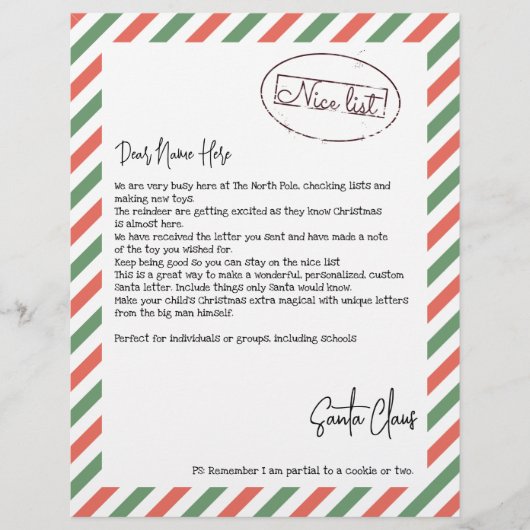 Nice list
Dear Name Here
We are very busy here at The North Pole, checking lists and
making new toys.
The reindeer are getting excited as they know Christmas
is almost here.
We have received the letter you sent and have made a note
of the toy you wished for.
Keep being good so you can stay on the nice list
This is a great way to make a wonderful, personalized, custom
Santa letter. Include things only Santa would know.
Make your child's Christmas extra magical with unique letters
from the big man himself.
Perfect for individuals or groups, including schools
Santa Claus
PS: Remember I am partial to a cookie or two.